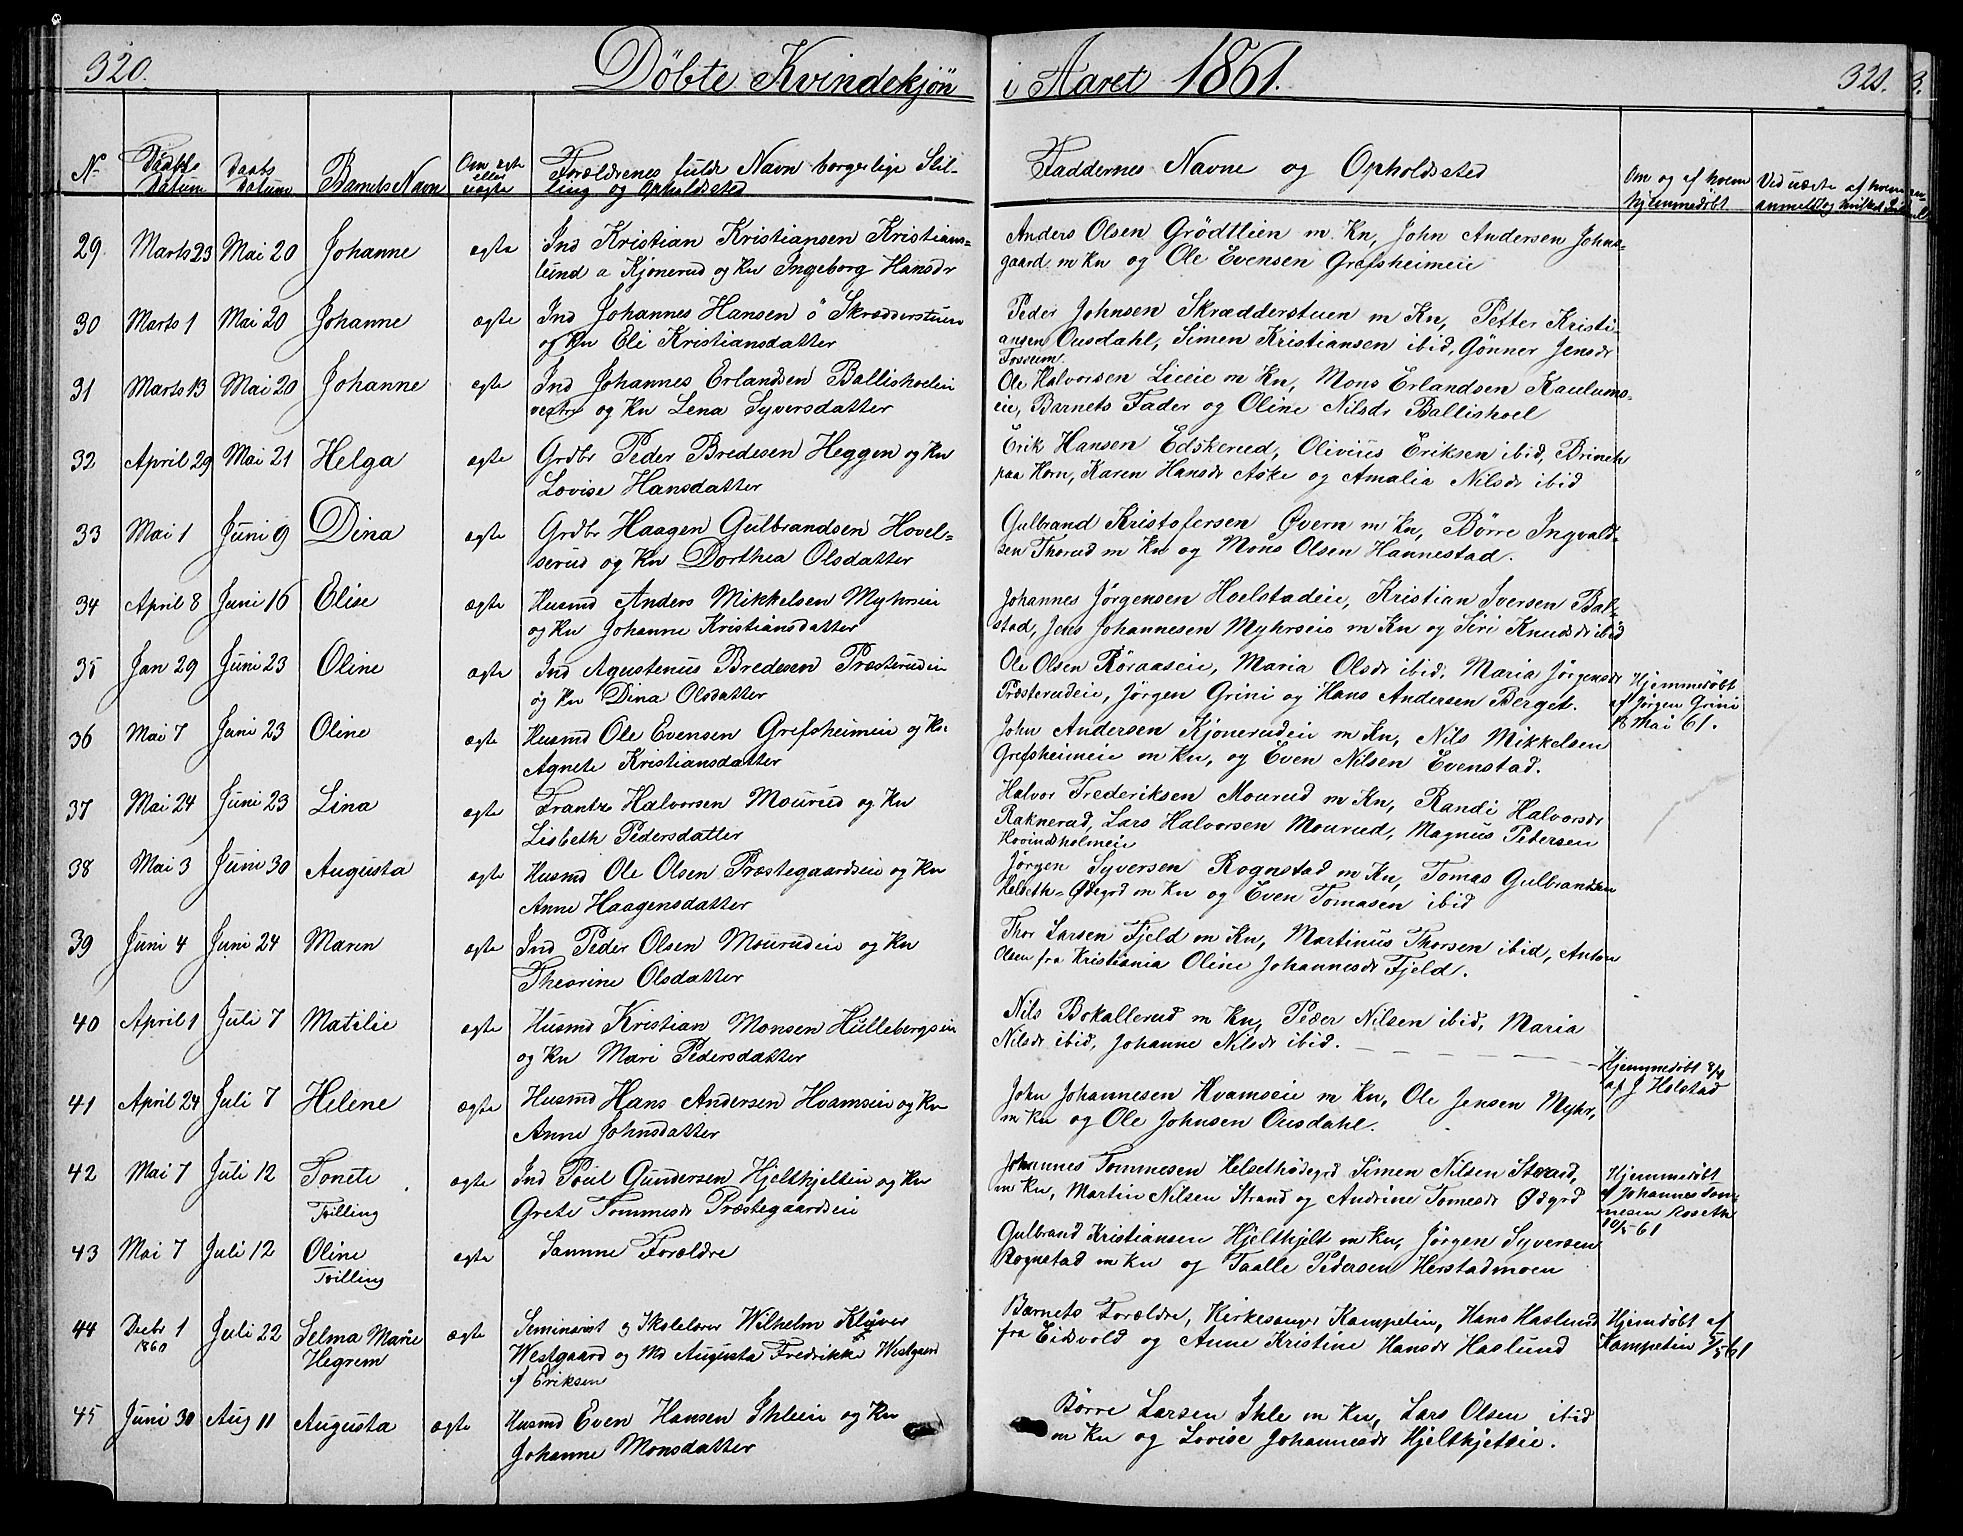 320.
Døbte Kvindekjøn
i Aaret 1861.
321.
No
Fødsels Datum
Daabs Datum
Barnets Navn
Om ægte eller uægte
Forældrenes fulde Navn borgerlige Stilling og Opholdsted
Faddernes Navne og Opholdssted
Om og af hvem hjemmedøbt
Ved uægte af hvem anmeldt og
29. Marts 23 Mai 20 Johanne ægte Ind Kristian Kristiansen Kristians=
lund a Kjonerud og Kn Ingeborg Hansdr
Anders Olsen Grödtlien m Kn, John Andersen Johns=
gaard m Kn og Ole Evensen Grefsheimeie
30 Marts 1 Mai 20 Johanne ægte Ind Johannes Hansen ö Skrædderstuen
og Kn Eli Kristiansdatter
Peder Johnsen Skrædderstuen m Kn, Petter Kristi-
ansen Ousdahl, Simen Kristiansen ibid, Gönner Jensdr
31 Marts 13 Mai 20 Johanne ægte Ind Johannes Erlandsen Ballishoeleie
vestre og Kn Lena Syversdatter
Ole Halvorsen Lieeie m Kn, Mons Erlandsen Kaulums=
eie, Barnets Fader og Oline Nilsdr Ballishoel
32 April 29 Mai 21 Helga ægte Grdbr Peder Bredesen Heggen og Kn
Lovise Hansdatter
Erik Hansen Edskerud, Olivius Eriksen ibid, Brinch
paa Horn, Karen Hansdr Aske og Amalia Nilsdr ibid
33 Mai 1 Juni 9 Dina ægte Grdbr Haagen Gulbrandsen Hovel=
serud og Kn Dorthea Olsdatter
Gulbrand Kristofersen Øvern m Kn, Börre Ingvald-
sen Thorud m Kn og Mons Olsen Hannestad.
34 April 8 Juni 16 Elise ægte Husmd Anders Mikkelsen Myhrseie
og Kn Johanne Kristiansdatter
Johannes Jørgensen Hoelstadeie, Kristian Iversen Bak-
stad, Jens Johannesen Myhrseie m Kn og Siri Knudsdr ibid
35 Jan 29 Juni 23 Oline ægte Ind Agustenus Bredesen Præsterudeie
og Kn Dina Olsdatter
Ole Olsen Röraaseie, Maria Olsdr ibid, Maria Jørgensdr
Præsterudeie, Jørgen Grini og Hans Andersen Berget.
Hjemmedöbt
af Jørgen Grini
18 Mai 61.
36 Mai 7 Juni 23 Oline ægte Husmd Ole Evensen Grefsheimeie og Kn
Agnete Kristiansdatter
John Andersen Kjonerudeie m Kn, Nils Mikkelsen
Grefsheimeie m Kn, og Even Nilsen Evenstad.
37 Mai 24 Juni 23 Lina ægte Frantz Halvorsen Mourud og Kn
Lisbeth Pedersdatter
Halvor Frederiksen Mourud m Kn, Randi Halvorsdr
Raknerud, Lars Halvorsen Mourud, Magnus Pedersen
Hovindsholmeie
38 Mai 3 Juni 30 Augusta ægte Husmd Ole Olsen Præstegaardseie og Kn
Anne Haagensdatter
Jørgen Syversen Rognstad m Kn, Tomas Gulbrandsen
Helseth=Ødegrd m Kn og Even Tomasen ibid
39 Juni 4 Juni 24 Maren ægte Ind Peder Olsen Mourudeie og Kn
Theorine Olsdatter
Thor Larsen Fjeld m Kn, Martinus Thorsen ibid, Anton
Olsen fra Kristiania Oline Johannesdr Fjeld.
40 April 1 Juli 7 Matilie ægte Husmd Kristian Monsen Hullebergseie
og Kn Mari Pedersdatter
Nils Bokallerud m Kn, Peder Nilsen ibid, Maria
Nilsdr ibid, Johanne Nilsdr ibid.
Hjemmedöbt
af J Holstad
41 April 24 Juli 7 Helene ægte Husmd Hans Andersen Hvamseie og Kn
Anne Johnsdatter
John Johannesen Hvamseie m Kn, Ole Jensen Myhr,
m Kn og Ole Johnsen Ousdahl.
42 Mai 7 Juli 12 Tonete ægte Ind Poul Gundersen Hjelthjelteie og Kn
Tvilling Grete Tommesdr Præstegaardseie
Johannes Tommesen Helsethödegrd Simen Nilsen Strand,
m Kn, Martin Nilsen Strand og Andrine Tomesdr Ødgrd
Hjemmedöbt
af Johannes Tom-
mesen Roseth
10/5 61
43 Mai 7 Juli 12 Oline ægte Samme Forældre
Tvilling
Gulbrand Kristiansen Hjelthjelt m Kn, Jørgen Syversen
Rognstad m Kn og Taalle Pedersen Herstadmoen
44 Decbr 1 Juli 22 Selma Marie ægte Seminarist og Skolelærer Wilhelm Klüwer
1860 Hegrem Westgaard og Md Augusta Fredrikke Westgaard
f Eriksen
Barnets Forældre, Kirkesanger Kampetin, Hans Haslund
fra Eidsvold og Anne Kristine Hansdr Haslund
Hjemdöbt af
Kampetin 1/5 61
45 Juni 30 Aug 11 Augusta ægte Husmd Even Hansen Ihleie og Kn
Johanne Monsdatter
Börre Larsen Ihle m Kn, Lars Olsen ibid
m Kn og Lovise Johannesdr Hjelthjeteie.